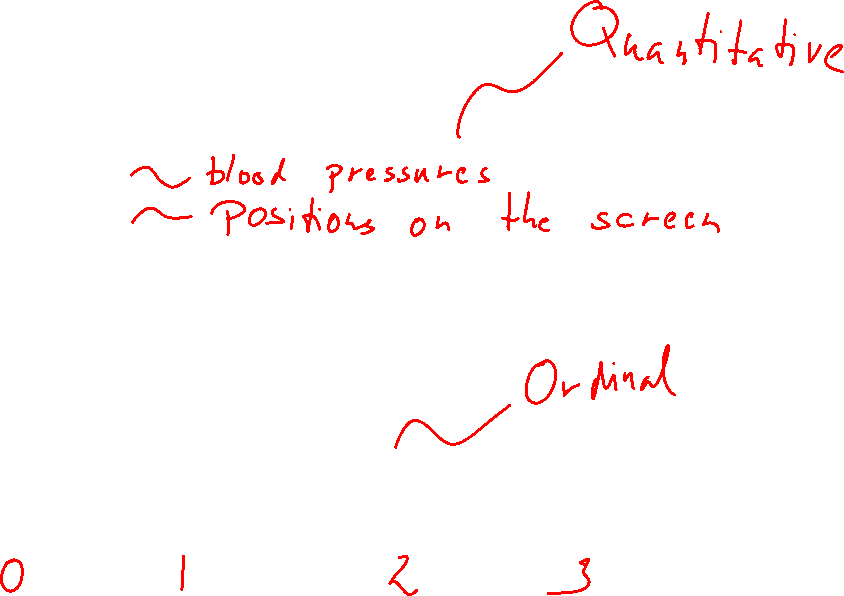 Quantitative
~ blood pressures
~ Positions on the screen
Ordinal
0 1 2 3